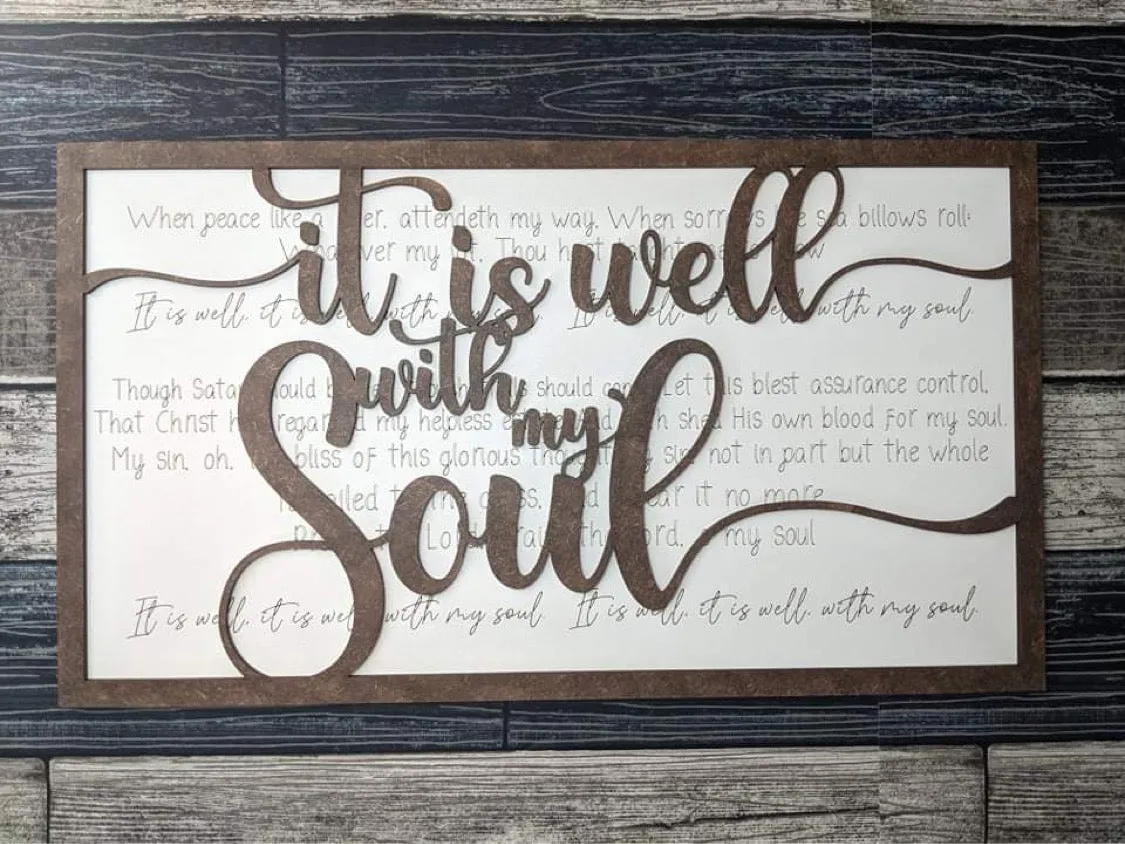 it is well
with
my
Soul
When peace like a er. attendeth my way. When sorr s e sea billows roll.
ver my t. Thou h st taught me w
It is well. it is well with my soul. It is well. it is well. with my soul.
Though Satan ould b should co Let this blest assurance control.
That Christ h regar d my helpless e shed His own blood for my soul.
My sin. oh. bliss of this glorious thought sin not in part but the whole
ailed to the c ss. nd ear it no more
P the Lord. rai the ord. my soul
It is well. it is well with my soul. It is well. it is well. with my soul.